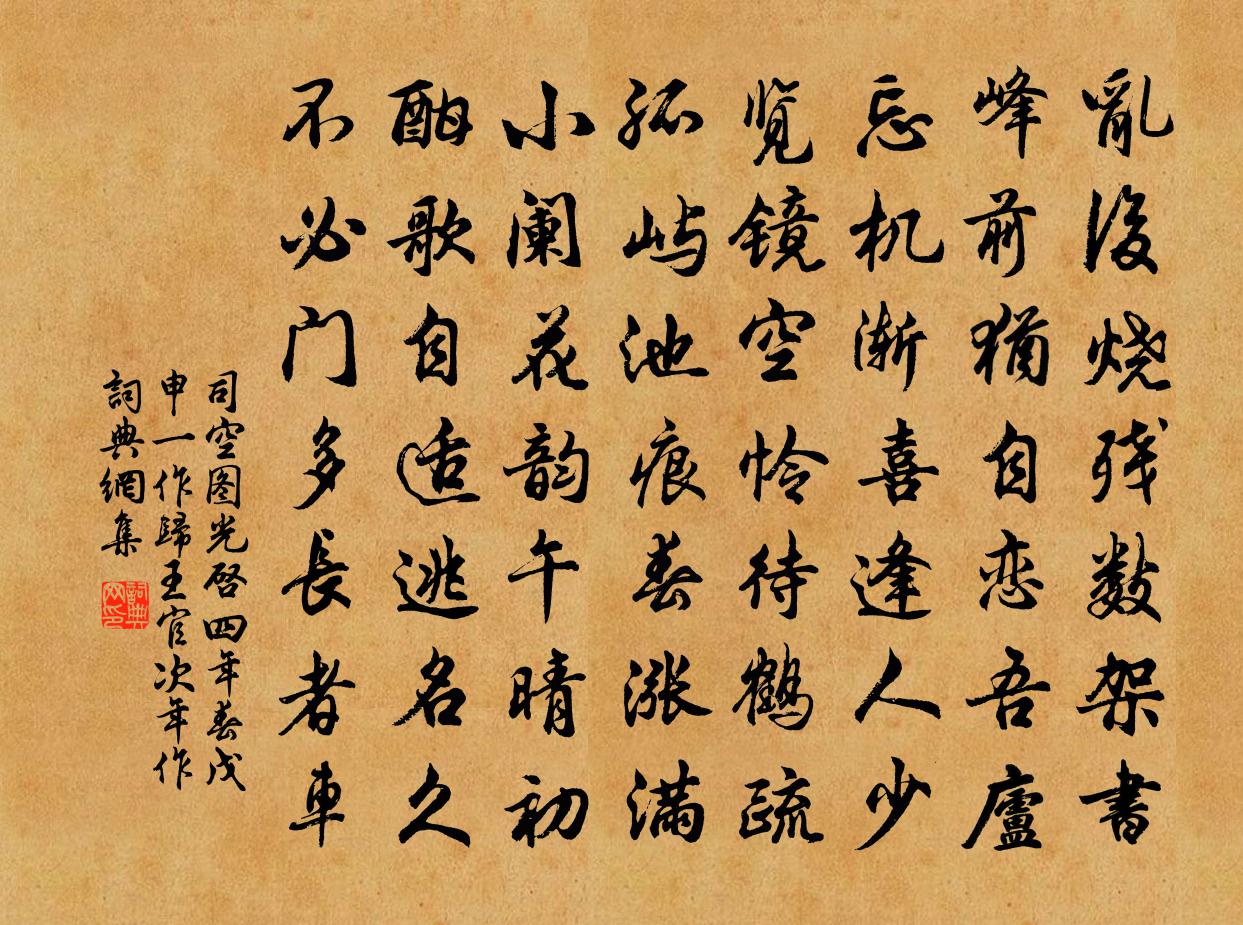 亂後烧残数架書
峰前猶自恋吾廬
忘机渐喜逢人少
览镜空怜待鹤疏
孤屿池痕春涨满
小阑花韵午晴初
酣歌自适逃名久
不必门多長者車
司空图光启四年春戊
申一作歸王官次年作
詞典網集
詞典
网印